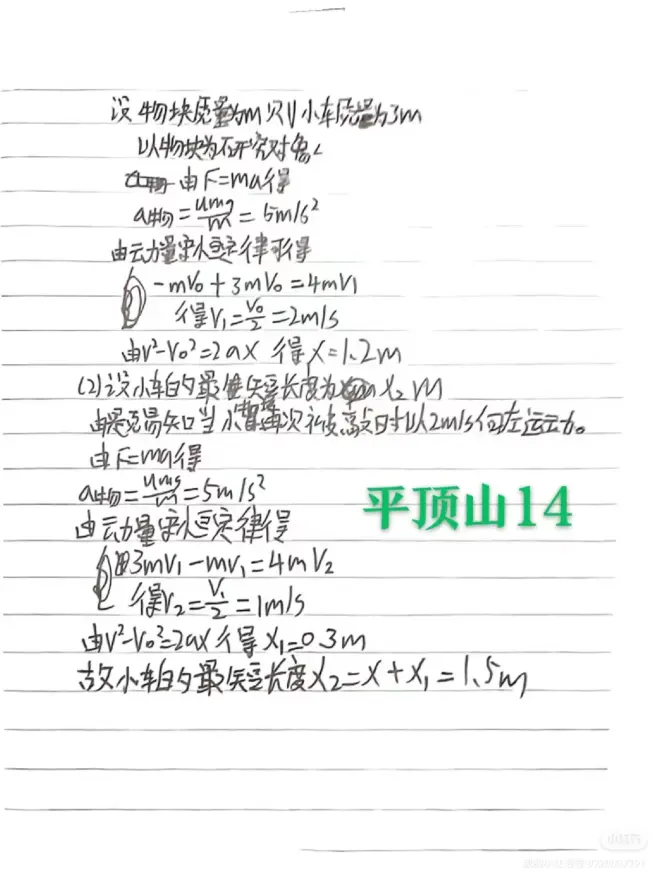 设物块质量为m 则小车质量为3m
以物块为研究对象
由F=ma得
a物=umg/m=5m/s²
由动量守恒定律可得
-mV0+3mV0=4mV1
得V1=V0/2=2m/s
由V²-V0²=2ax 得x=1.2m
(2)设小车的最短长度为x2 m
由题易知当小车再次被敲时以2m/s向左运动。
由F=ma得
a物=umg/m=5m/s²
平顶山14
由动量守恒定律得
3mV1-mV1=4mV2
得V2=V1/2=1m/s
由V²-V0²=2ax得x1=0.3m
故小车的最短长度x2=x+x1=1.5m
小红书